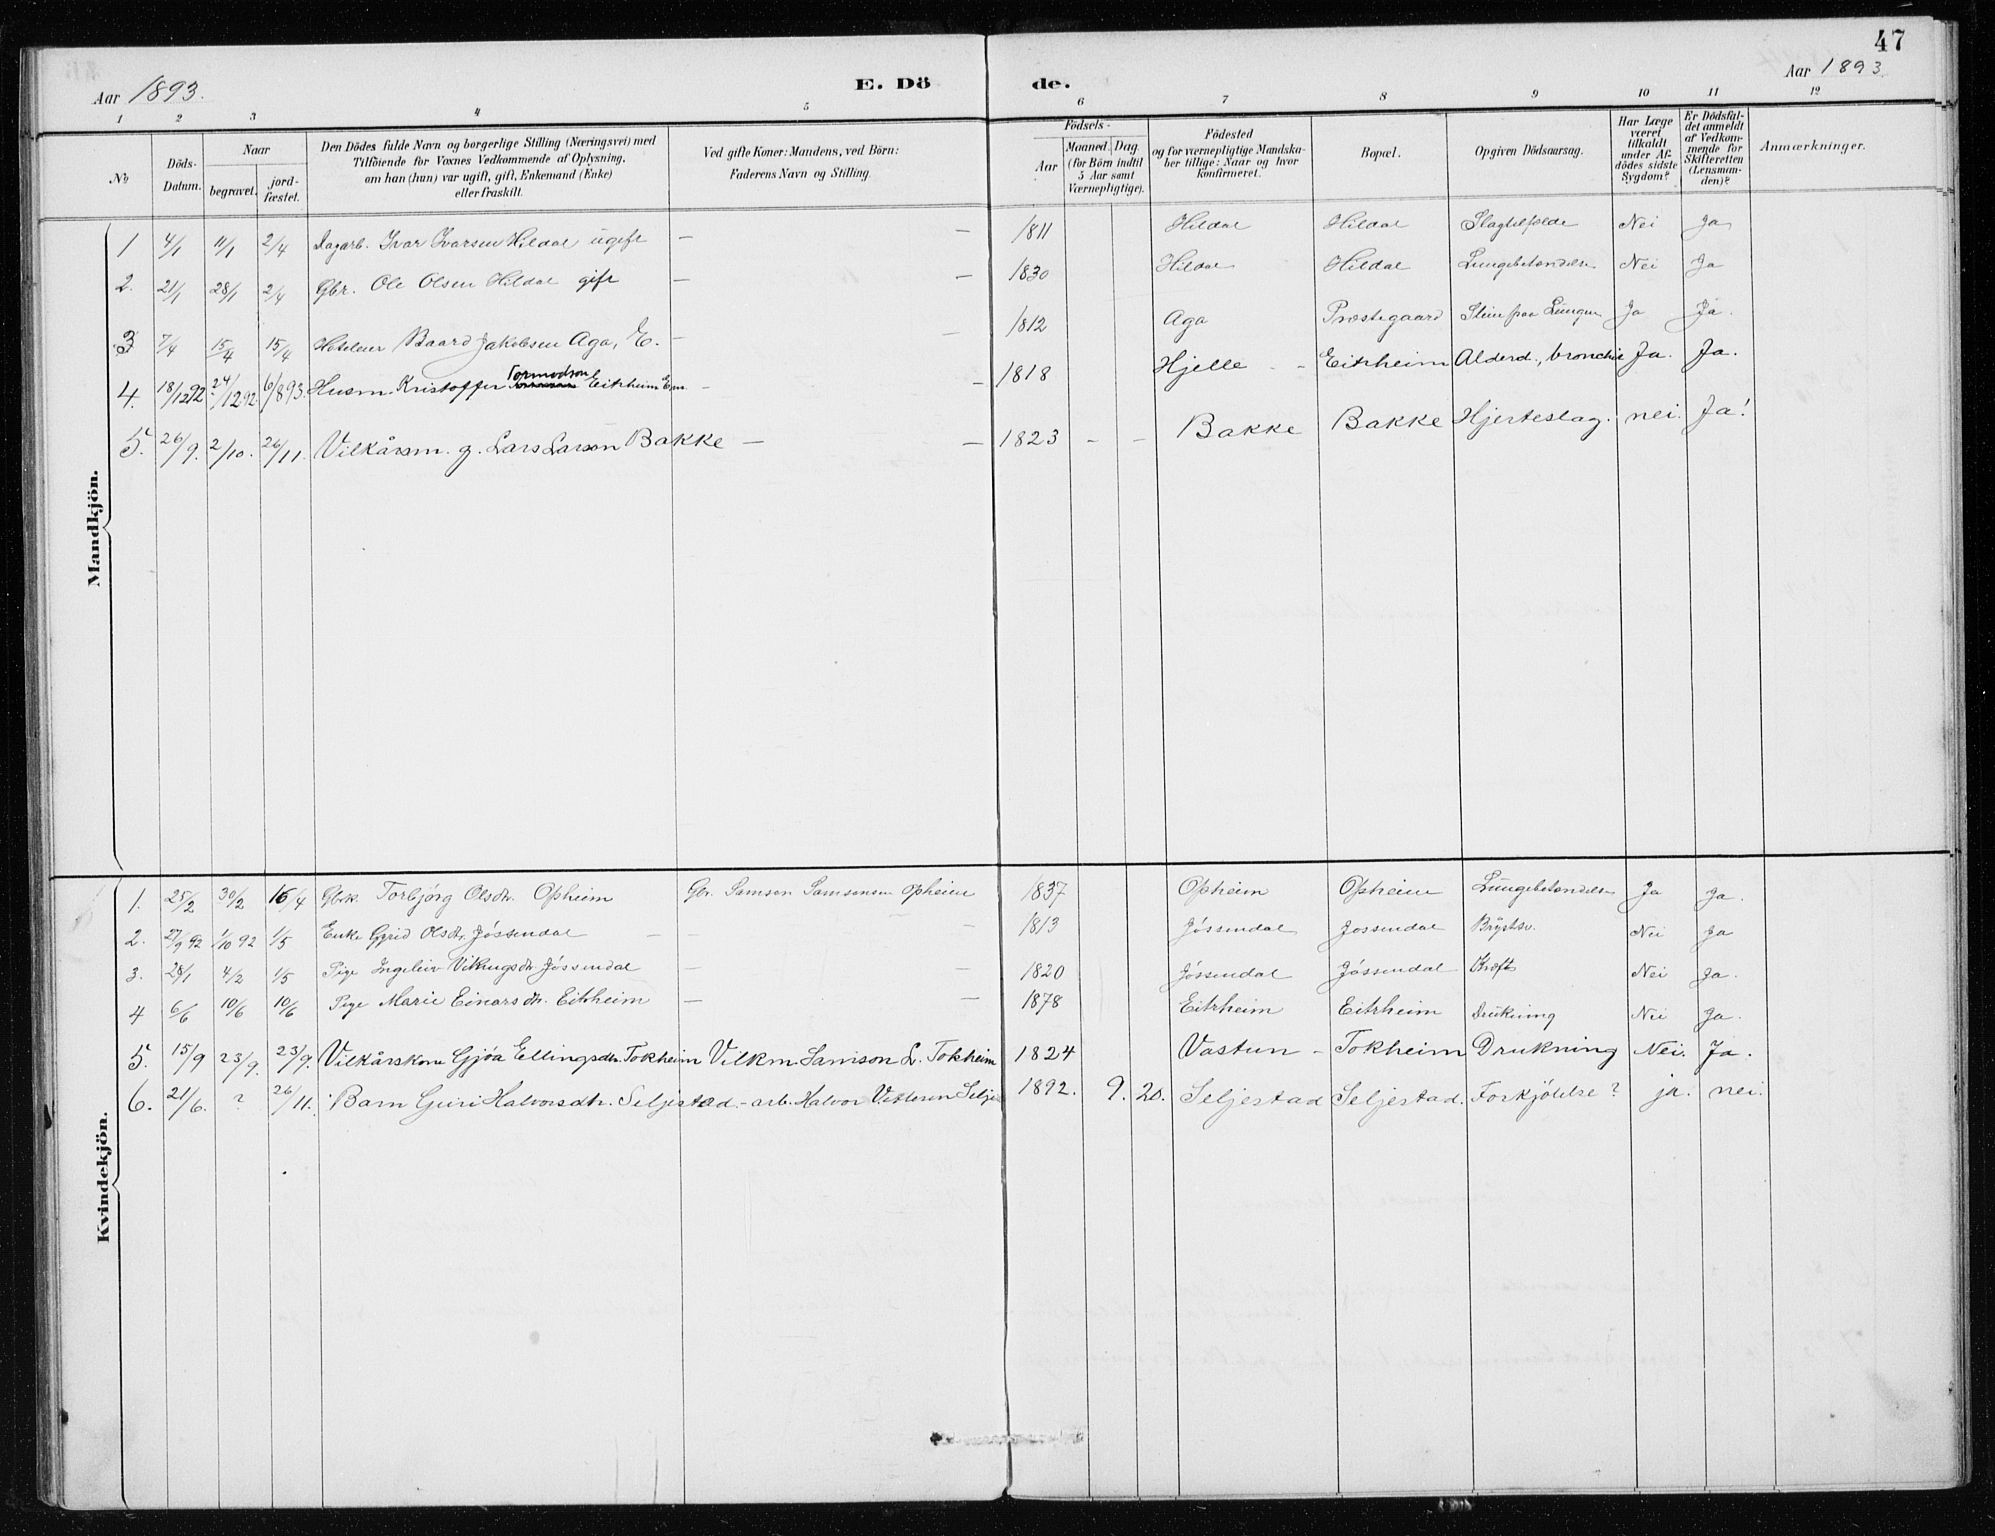 47
Aar 1893. E. Dö de. Aar 1893.
1 2 3 4 5 6 7 8 9 10 11 12
No
Döds-Datum.
Naar
begravet.
jord-fæstet.
Den Dödes fulde Navn og borgerlige Stilling (Næringsvei) med
Tilföiende for Voxnes Vedkommende af Oplysning,
om han (hun) var ugift, gift, Enkemand (Enke)
eller fraskilt.
Ved gifte Koner: Mandens, ved Börn:
Faderens Navn og Stilling.
Födsels-
Aar
Maaned. Dag.
(for Börn indtil
5 Aar samt
Værnepligtige).
Födested
og for værnepligtige Mandska-
ber tillige: Naar og hvor
konfirmeret.
Bopæl.
Opgiven Dödsaarsag.
Har Læge
været
tilkaldt
under Af-
dödes sidste
Sygdom?
Er Dödsfal-
det anmeldt
af Vedkom-
mende for
Skifteretten
(Lensman-
den)?
Anmærkninger.
Mandkjön.
1 4/1 11/1 2/4 Dagarb. Ivar Ivarsen Hildal ugift — — 1811 Hildal Hildal Slagtilfælde Nei Ja
2. 21/1 28/1 2/4 Gbr. Ole Olsen Hildal gift — — 1830 Hildal Hildal Lungebetændelse Nei Ja
3 7/4 15/4 15/4 Hoteleier Baard Jakobsen Aga, E. — — 1812 Aga Præstegaard Sliim paa Lungen Ja Ja.
4. 18/12 92 24/12 92. 6/8 93. Husm. Kristoffer Tormodson Eitrheim Em. — — 1818 Hjelle - Eitrheim Alderd., bronchit Ja. Ja.
5. 26/9. 2/10. 26/11. Vilkårsm. g. Lars Larson Bakke — — 1823 - - Bakke Bakke Hjerteslag. nei. Ja!
Kvindekjön.
1. 25/2 30/2 16/4 Gbrk. Torbjörg Olsdtr. Opheim Gbr. Samson Samsonsen Opheim 1837 Opheim Opheim Lungebetændelse Ja Ja.
2. 27/9 92 1/10 92 1/5 Enke Gyrid Olsdtr. Jössendal — — — 1813 Jössendal Jössendal Brystsv. Nei Ja
3. 28/1 4/2 1/5 Pige Ingeleiv Vikingsdtr. Jössendal — — 1820 Jössendal Jössendal Kræft Nei Ja.
4 6/6 10/6 10/6 Pige Marie Einarsdtr. Eitrheim — — 1878 Eitrheim Eitrheim Drukning Nei Ja.
5. 15/9 23/9. 23/9. Vilkårskone Gjöa Ellingsdtr. Tokheim Vilkm. Samson L. Tokheim 1824 Vastun - Tokheim Drukning Nei. Ja.
6. 21/6. ? 26/11. Barn Guri Halvorsdtr. Seljestad. - arb. Halvor Vetleson Selje 1892. 9. 20. Seljestad Seljestad. Forkjölelse? ja. nei.